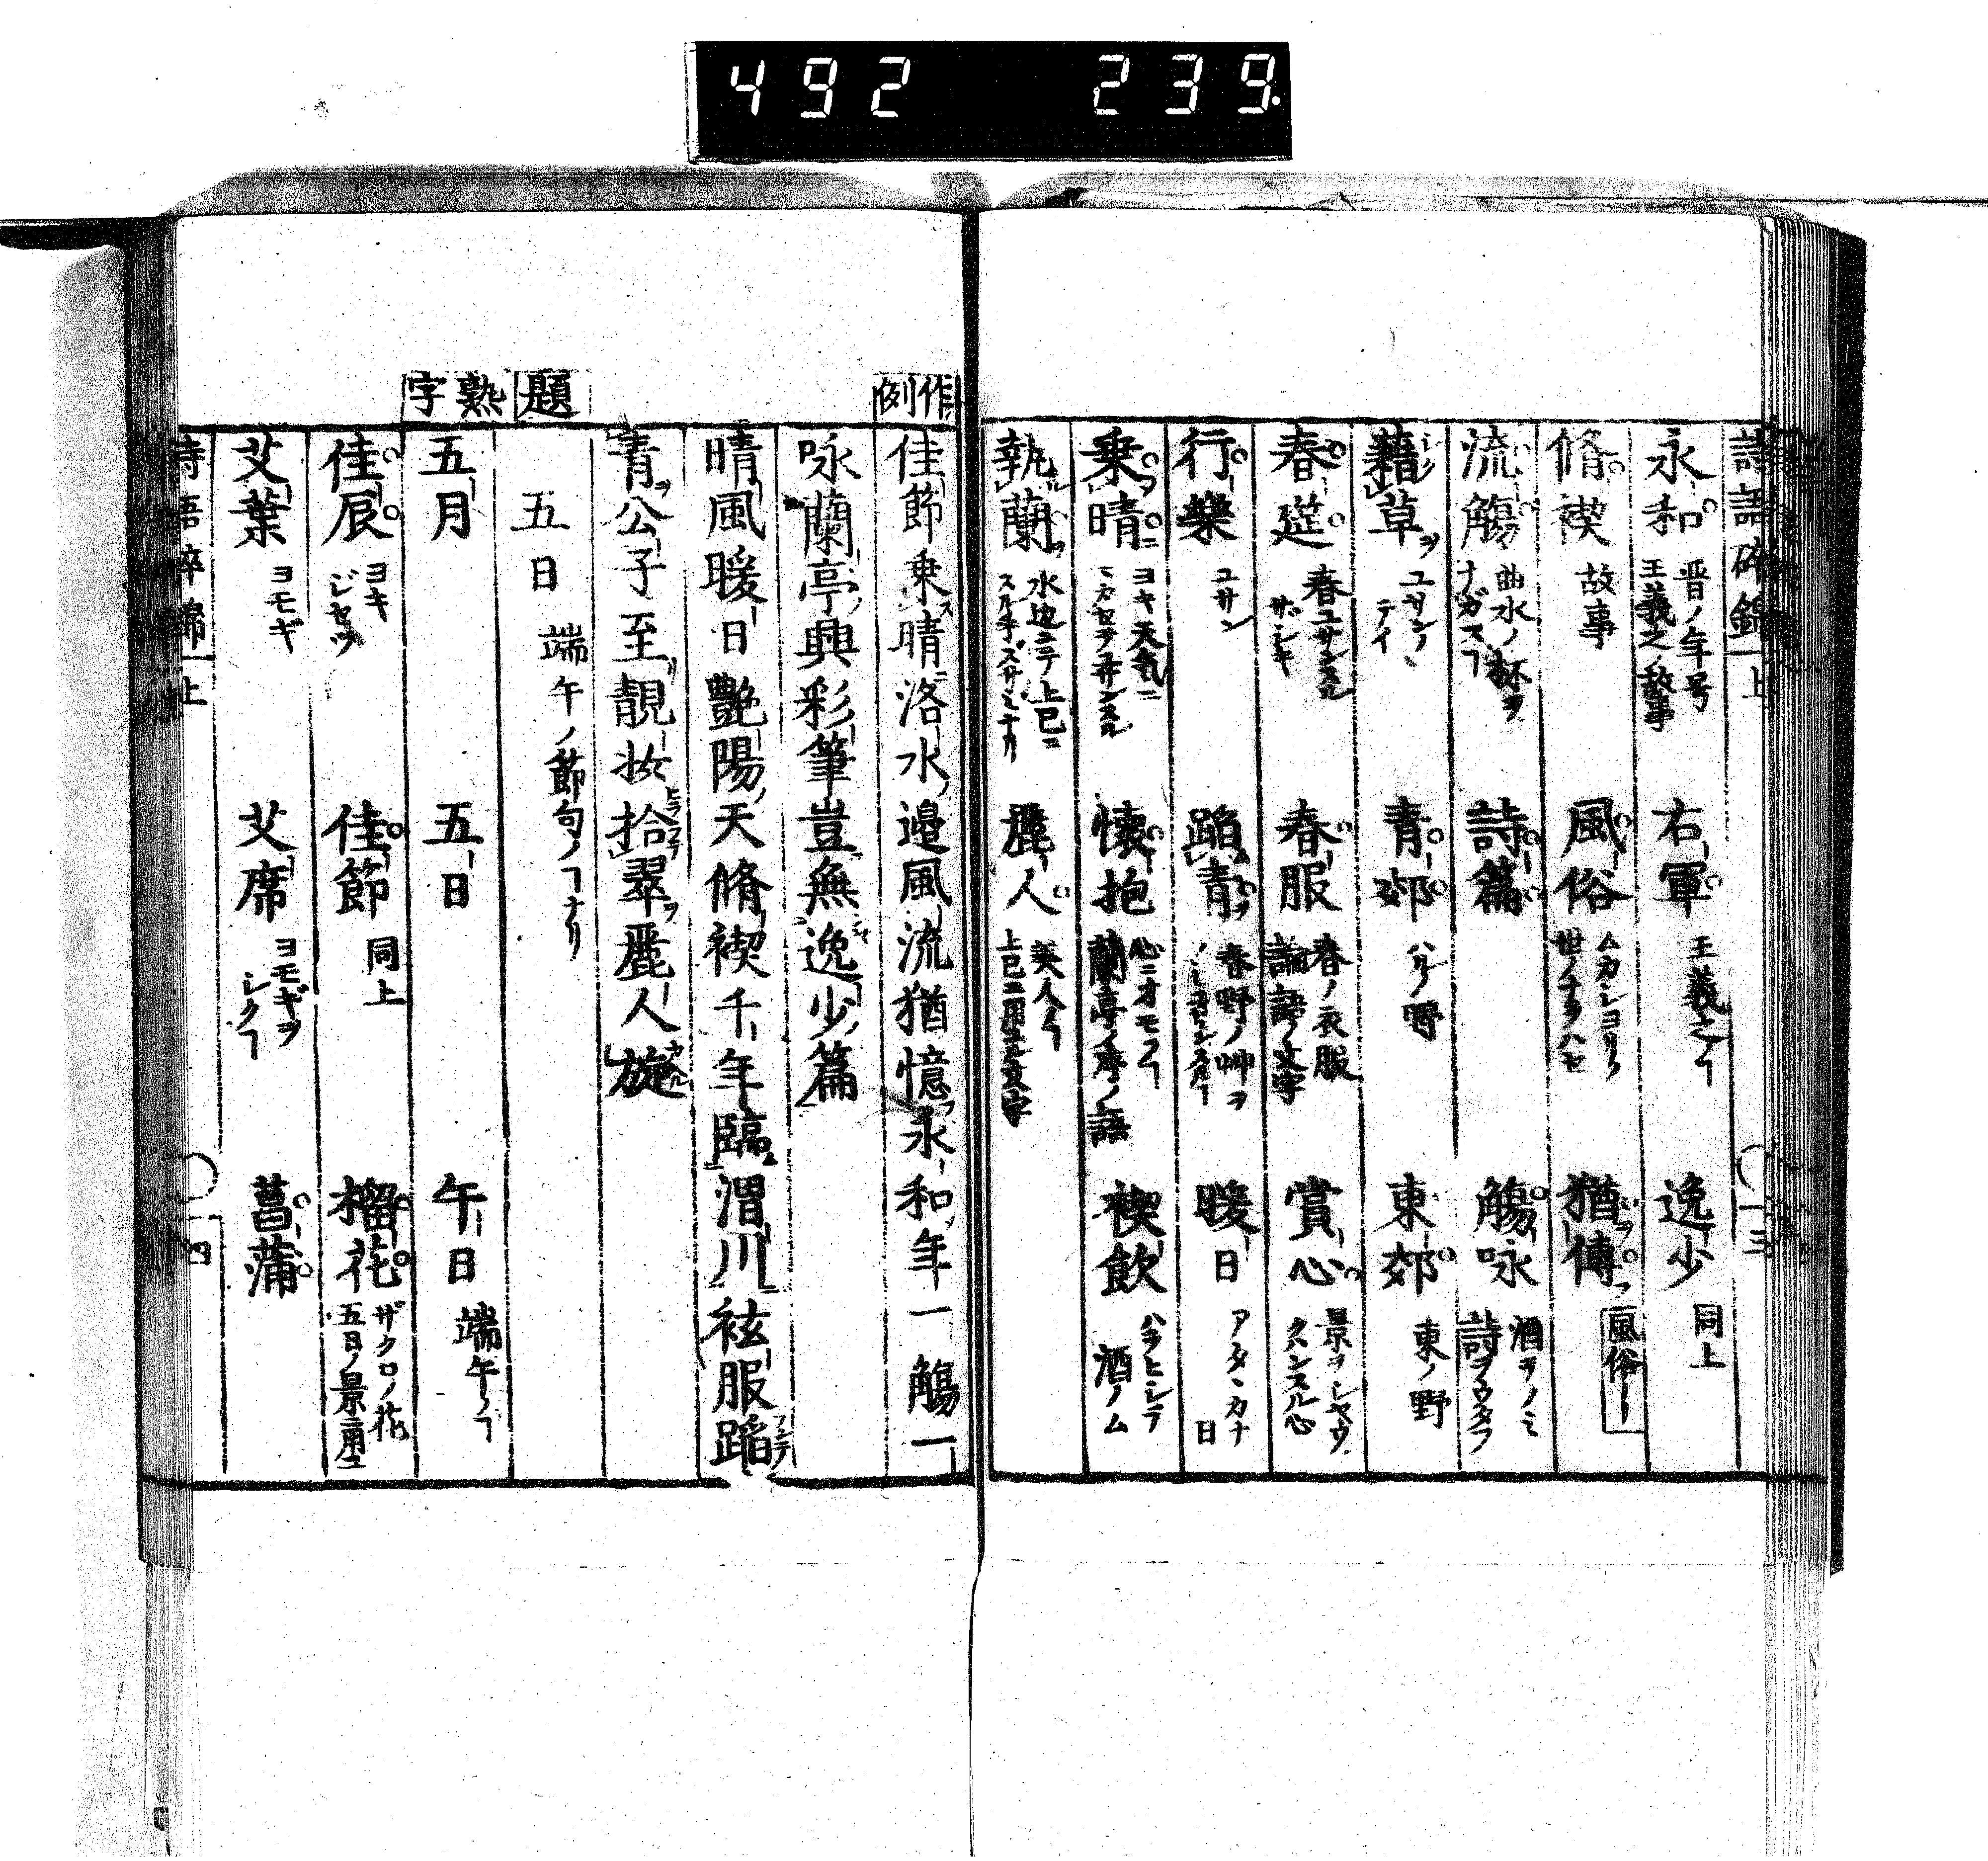 492 239
詩語碎錦 上 十三
永和 晋ノ年号 王羲之ノ故事 右軍 王羲之ノヿ 逸少 同上
脩禊 故事 風俗 ムカシヨリノ 猶傳 風俗ー
流觴 曲水ノ杯ヲ ナガスヿ 詩篇 觴咏 酒ヲノミ 詩ヲウタフ
藉草 ユサンノ テイ 青郊 ハルノ野 東郊 東ノ野
春筵 春ユサンスル ザシキ 春服 春ノ衣服 論語ノ文字 賞心 景ヲシヤウ クハンスル心
行樂 ユサン 蹈青 春野ノ艸ヲ 暖日 アタヽカナ 日
乗晴 ヨキ天氣ニ 懐抱 心ニオモフヿ 蘭亭ノ序ノ語 禊飲 ハラヒシテ 酒ノム
執蘭 水邊ニテ上巳ニ 麗人 美人ノヿ 上巳ニ用ユル文字
作例
佳節乗晴洛水邉風流猶憶永和年一觴一
咏蘭亭興彩筆豈無逸少篇
晴風暖日艷陽天脩禊千年臨渭川袨服蹈
青公子至靚妝拾翠麗人旋
題
五日 端午ノ節句ノヿナリ
熟字
五月 五日 午日 端午ノヿ
佳辰 ヨキ ジセツ 佳節 同上 榴花 ザクロノ花 五日ノ景ニ用ユ
艾葉 ヨモギ 艾席 ヨモギヲ シクヿ 菖蒲
詩語碎錦 上 十四